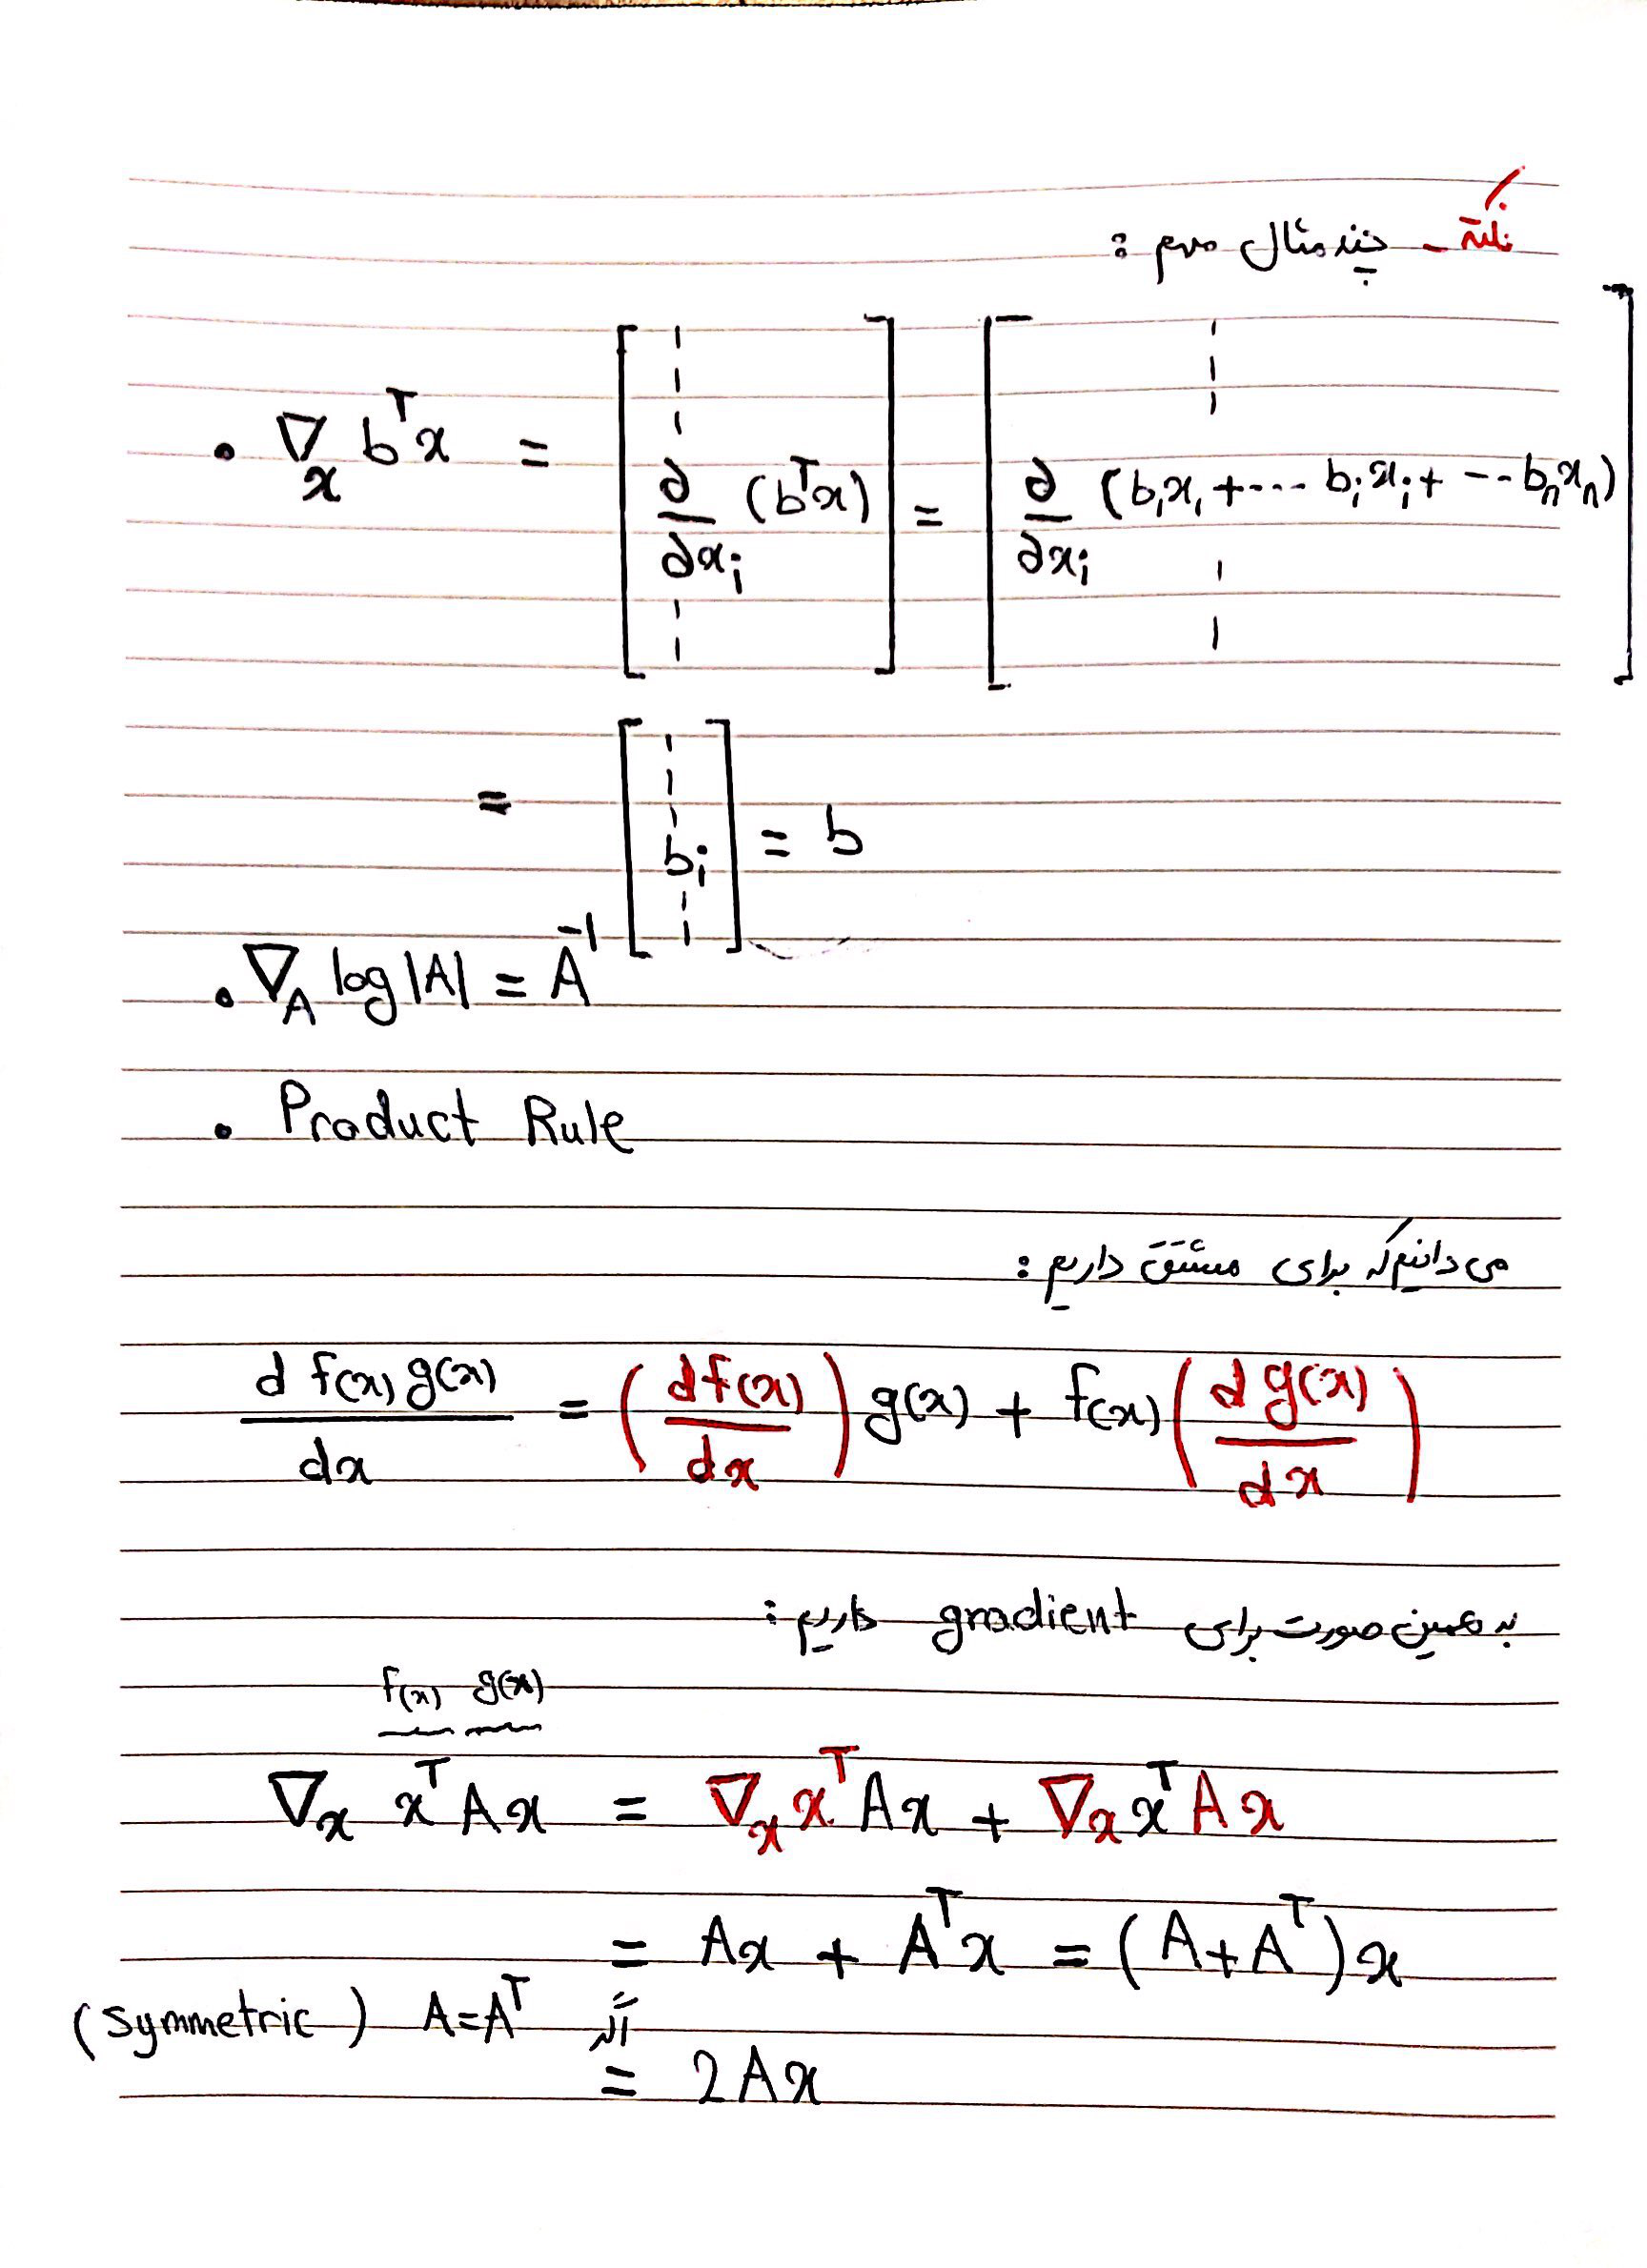 نکته - چند مثال مهم :
• ∇ₓ bᵀx = [ ⋮ ∂/∂xᵢ (bᵀx) ⋮ ] = [ ⋮ ∂/∂xᵢ (b₁x₁ + ... bᵢxᵢ + -- bₙxₙ) ⋮ ]
= [ ⋮ bᵢ ⋮ ] = b
• ∇_A log |A| = A⁻¹
• Product Rule
می دانیم که برای مشتق داریم :
d f(x) g(x) / dx = ( d f(x) / dx ) g(x) + f(x) ( d g(x) / dx )
به همین صورت برای gradient داریم :
f(x) g(x)
∇ₓ xᵀAx = ∇ₓ xᵀAx + ∇ₓ xᵀAx
= Ax + Aᵀx = (A+Aᵀ)x
(symmetric) A=Aᵀ اگر
= 2Ax